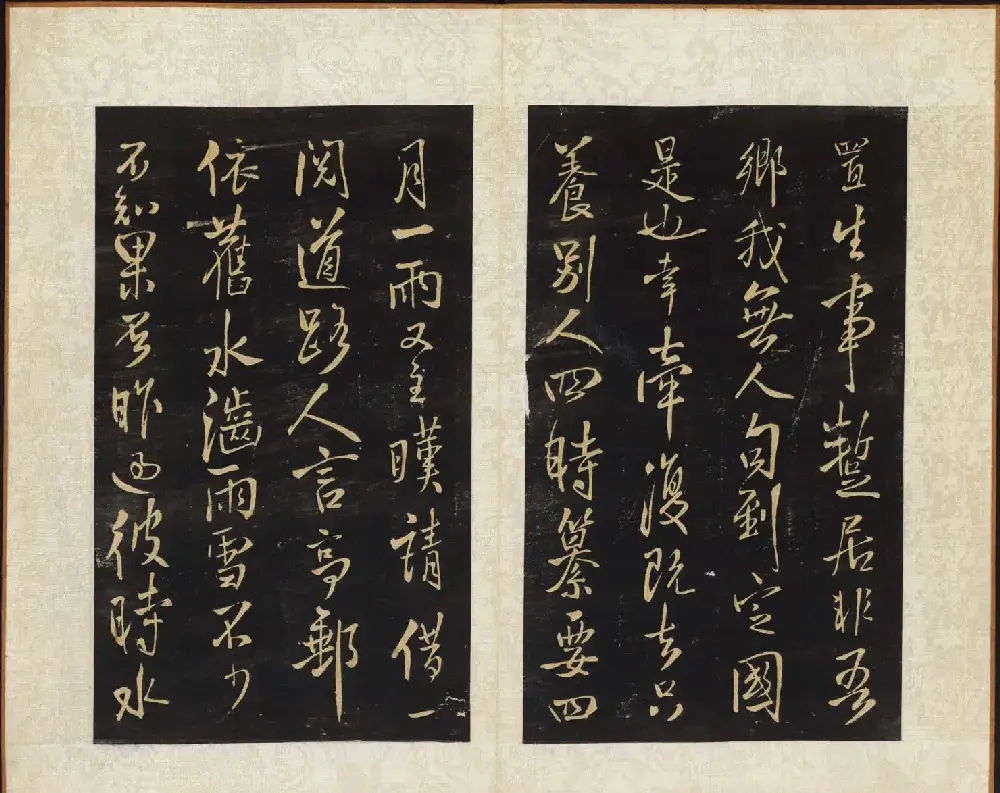 置生事蹔居非吾
鄉我無人向到定國
是也幸牽復既去只
養別人四時纂要四
月一雨又至嘆請借一
閱道路人言亭郵
依舊水潚雨雪不少
不知果然昨過彼時水